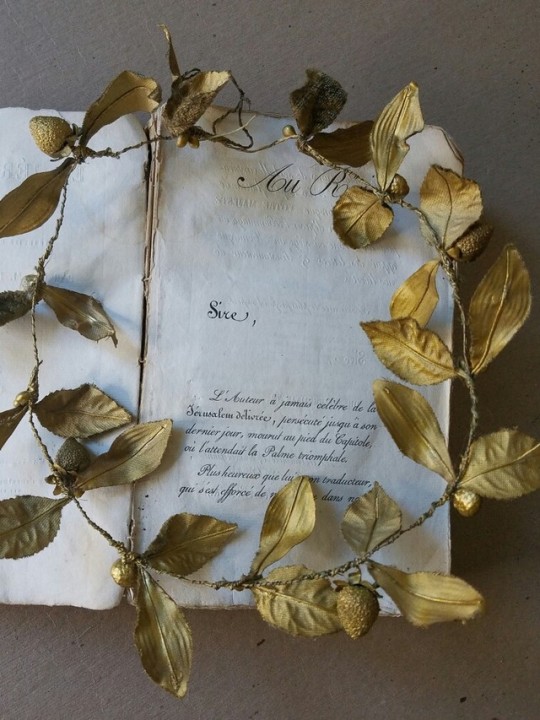 Au R
Sire,
L'Auteur à jamais célèbre de la
Jérusalem délivrée, persécuté jusqu'à son
dernier jour, mourut au pied du Capitole,
où l'attendait la Palme triomphale.
Plus heureux que lui, son traducteur,
qui s'est efforcé de dans